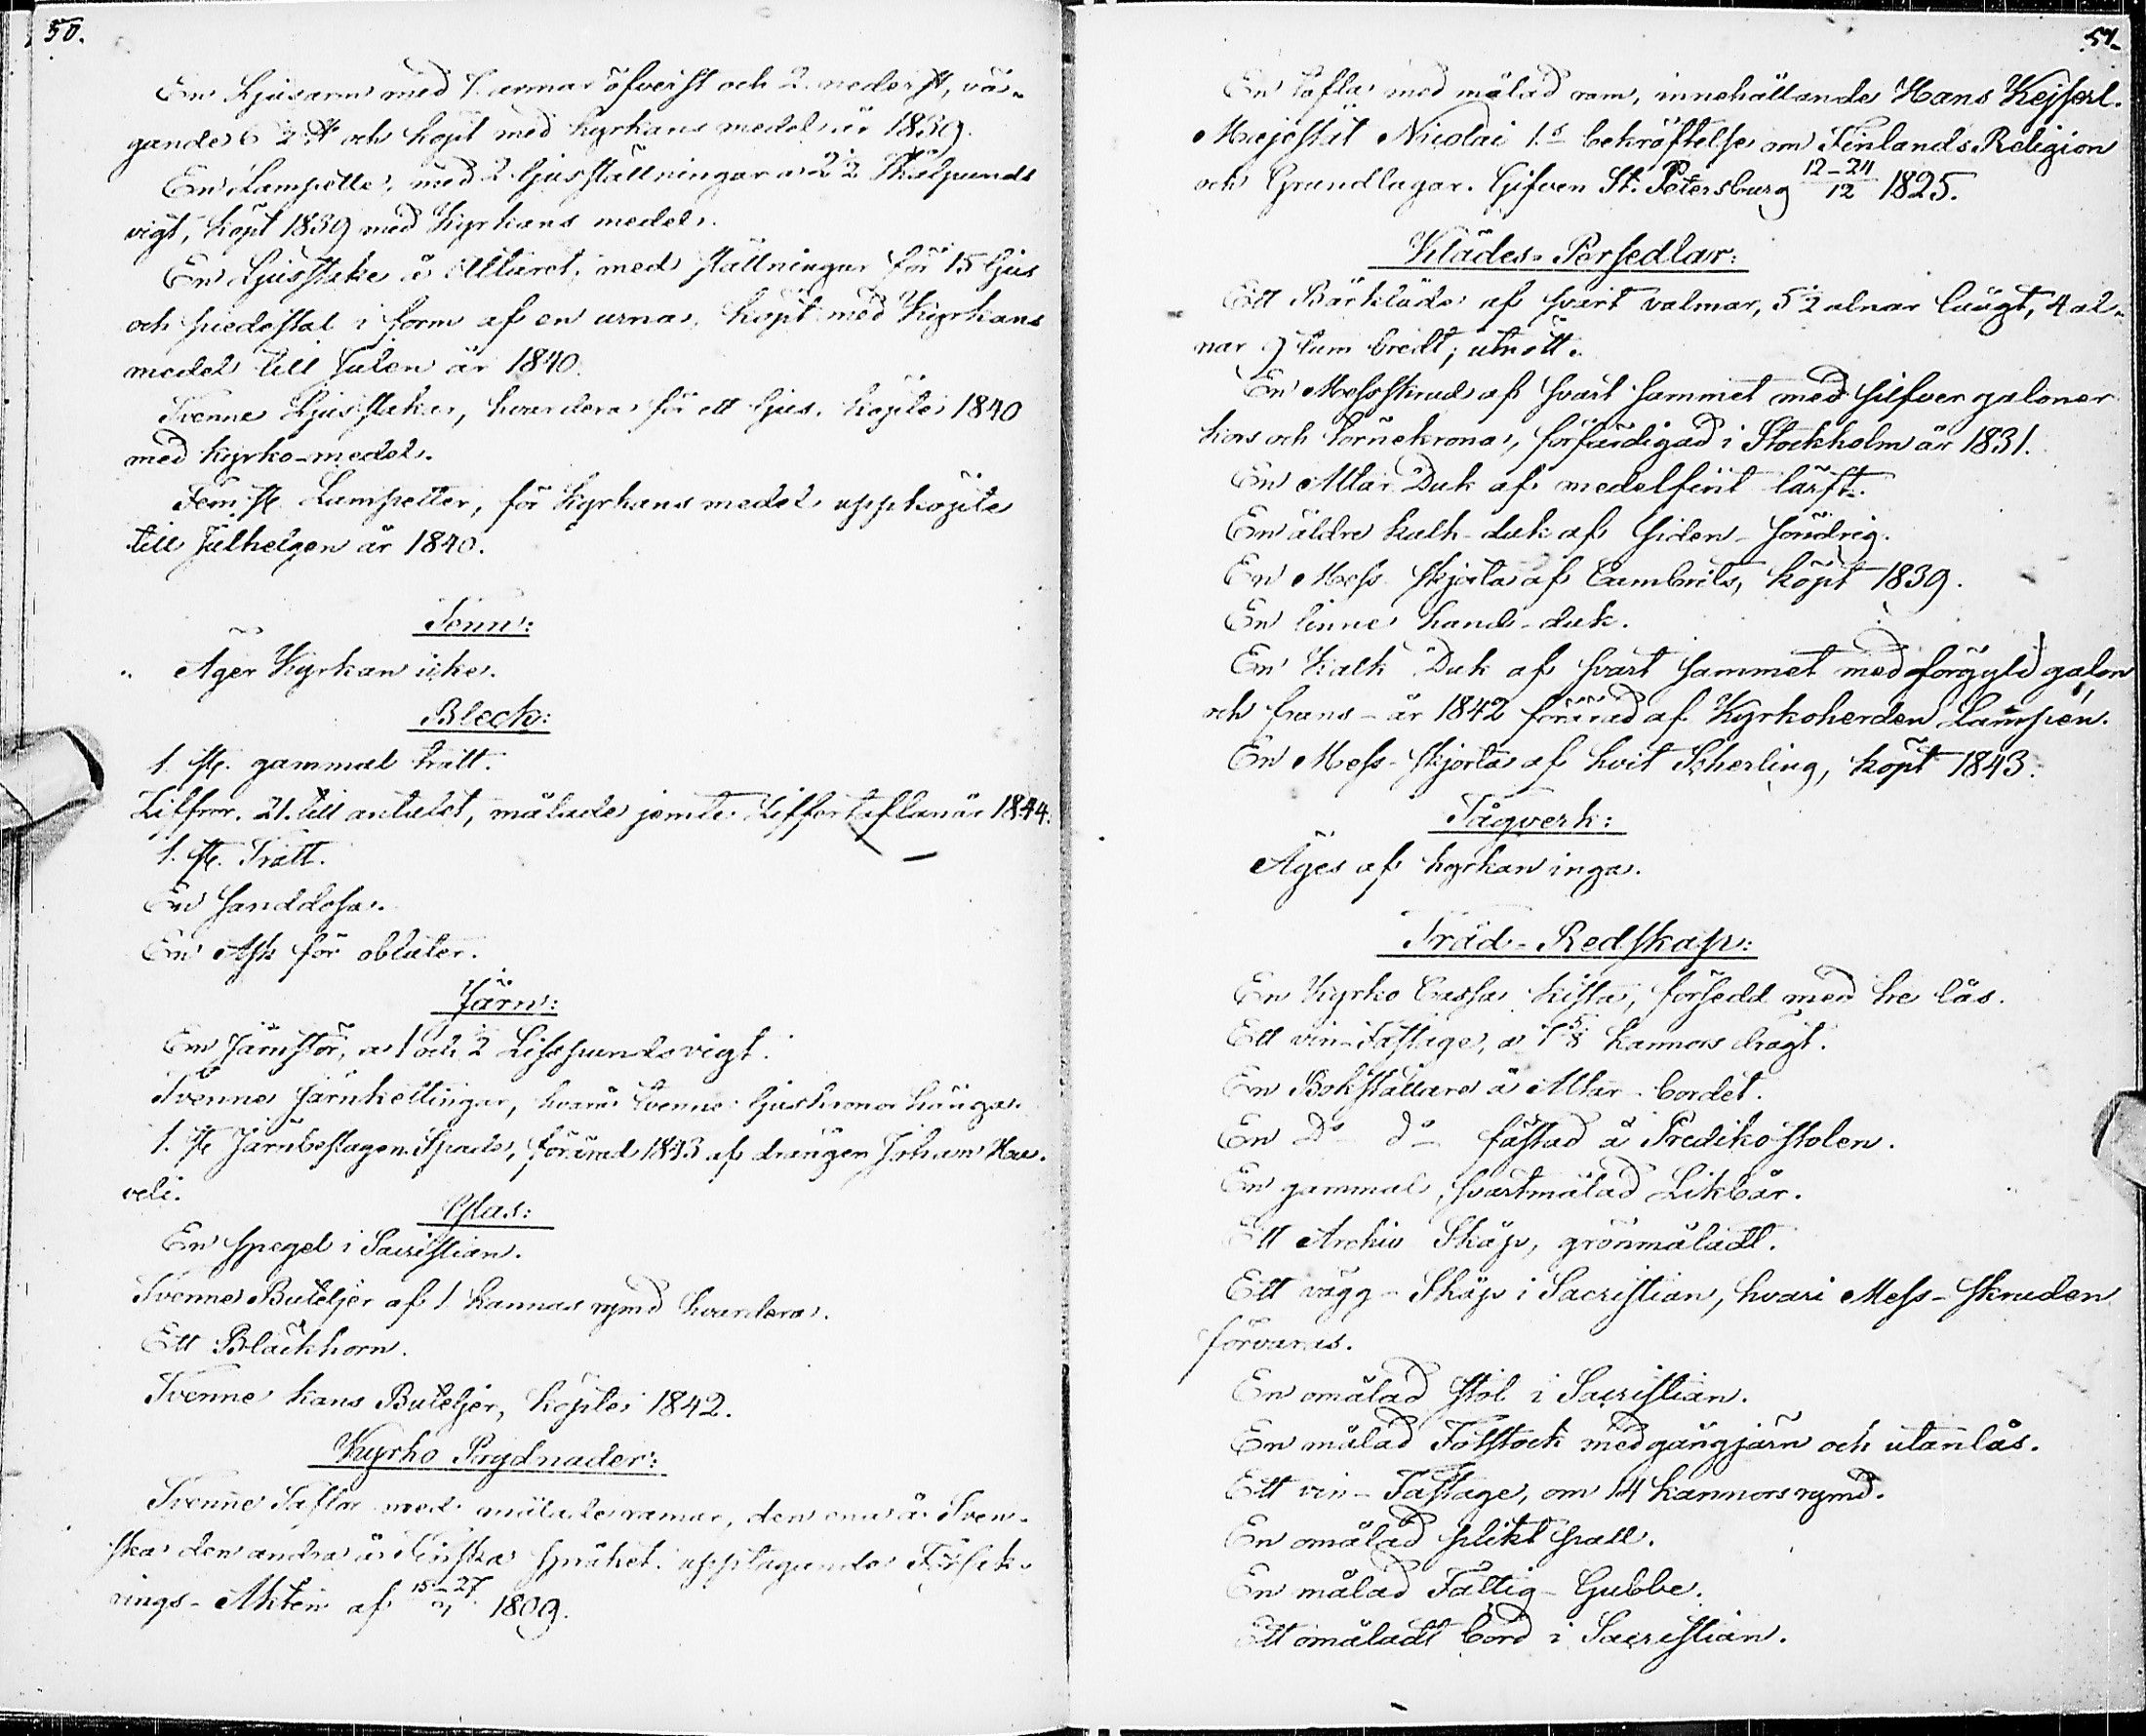 50.
En Ljusarm med 1. armar öfverst och 2. nederst, vä-
gande 6 2 ℔ och köpt med kyrkans medel år 1839.
En Lampette, med 2 ljusställningar a 2 ½ Skålpunds
vigt, köpt 1839 med Kyrkans medel.
En Ljusstake å Altaret, med ställningar för 15 ljus
och piedestal i form af en urna, köpt med Kyrkans
medel till Julen år 1840.
Tvenne Ljusstakar, hvardera för ett ljus. köpte 1840
med kyrko-medel.
Fem st. Lampetter, för Kyrkans medel uppköpte
till Julhelgen år 1840.
Tenn:
Äger Kyrkan icke.
Bleck:
1. st. gammal tratt.
Ziffror. 21. till antalet, målade jemte Ziffertaflan år 1844.
1. st. Tratt.
En Sanddosa.
En Ask för oblater.
Järn:
En Järnstör, a 1 och 2 Lisspunds vigt.
Tvenne Järnkettingar, hvarå tvenne ljuskronor hänga.
1. st Järnbeslagen Spade, förärad 1843 af drängen Johan Ha-
veli.
Glas:
En spegel i Sacristian.
Tvenne Buteljer af 1. kannas rymd hvardera.
Ett Bläckhorn.
Tvenne kans Buteljer, köpte 1842.
Kyrko Prydnader:
Tvenne Taflor med målade ramar, den ena å Sven-
ska den andra å Finska språket. upptagande Försäk-
rings-Akten af 15–27/3 1809.
51.
En tafla med målad ram, innehållande Hans Kejserl.
Majestät Nicolai 1.s bekräftelse om Finlands Religion
och Grundlagar. Gifven St. Petersburg 12–24/12 1825.
Klädes-Persedlar:
Ett Bårkläde af svart valmar, 5 ½ alnar långt, 4 al-
nar 9 tum bredt; utnött.
En Messskrud af svart sammet med silfver galoner
kors och törnekrona, förfärdigad i Stockholm år 1831.
En Altar Duk af medelfint lärft.
En äldre kalk-duk af Siden-Söndrig.
En Mess skjorta af Cambrits, köpt 1839.
En linne hand-duk.
En Kalk Duk af svart sammet med förgyld galon
och frans - år 1842 förärad af Kyrkoherden Lampén.
En Mess-skjorta af hvit Scherling, köpt 1843.
Tågverk:
Äges af kyrkan inga.
Träd-Redskap:
En Kyrko Cassa kista, försedd med tre lås.
Ett vin-Fastage, a 7 5/8 kannors drägt.
En Bokställare å Altar-bordet.
En Do do fästad å Predikostolen.
En gammal, svartmålad Likbår.
Ett Archiv Skåp, grönmåladt.
Ett vägg-Skåp i Sacristian, hvari Mess-skruden
förvaras.
En omålad stol i Sacristian.
En målad Fotstock med gångjärn och utanlås.
Ett vin-Fastage, om 14 kannors rymd.
En omålad plikt pall.
En målad Fattig-Gubbe.
Ett omåladt bord i Sacristian.